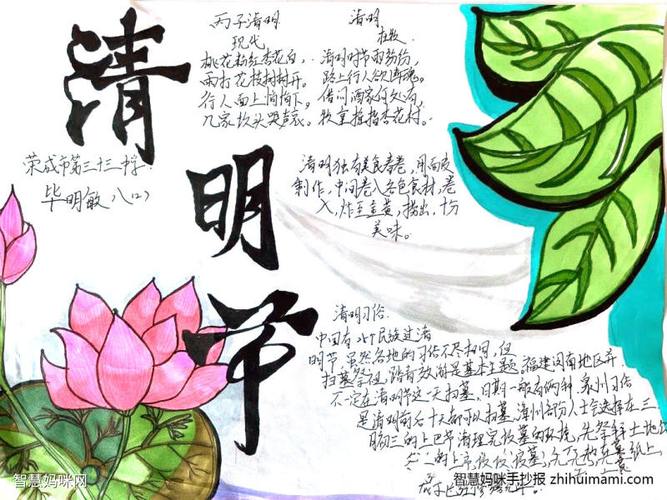 清明节
荣成市第三十三中学
毕明敏 八(2)
丙子清明
现代
桃花粉红杏花白，
雨打花枝树树开。
行人面上
几家坟头哭声哀。
清明
杜牧
清明时节雨纷纷，
路上行人欲断魂。
借问酒家何处有，
牧童遥指杏花村。
清明独有美食春卷，用面皮
制作，中间卷入各色食材，卷
入，炸至金黄，捞出，十分
美味。
清明习俗
中国有 个民族过清
明节，虽然各地的习俗不尽相同，但
扫墓祭祖，踏青放游是基本主题，福建闽南地区并
不一定在清明节这一天扫墓，日期一般有两种，泉州习俗
是清明前后十天都可以扫墓，漳州部分人士会选择在三
月初三的上巳节 先祭拜土地
智慧妈咪网
智慧妈咪手抄报 zhihuimami.com